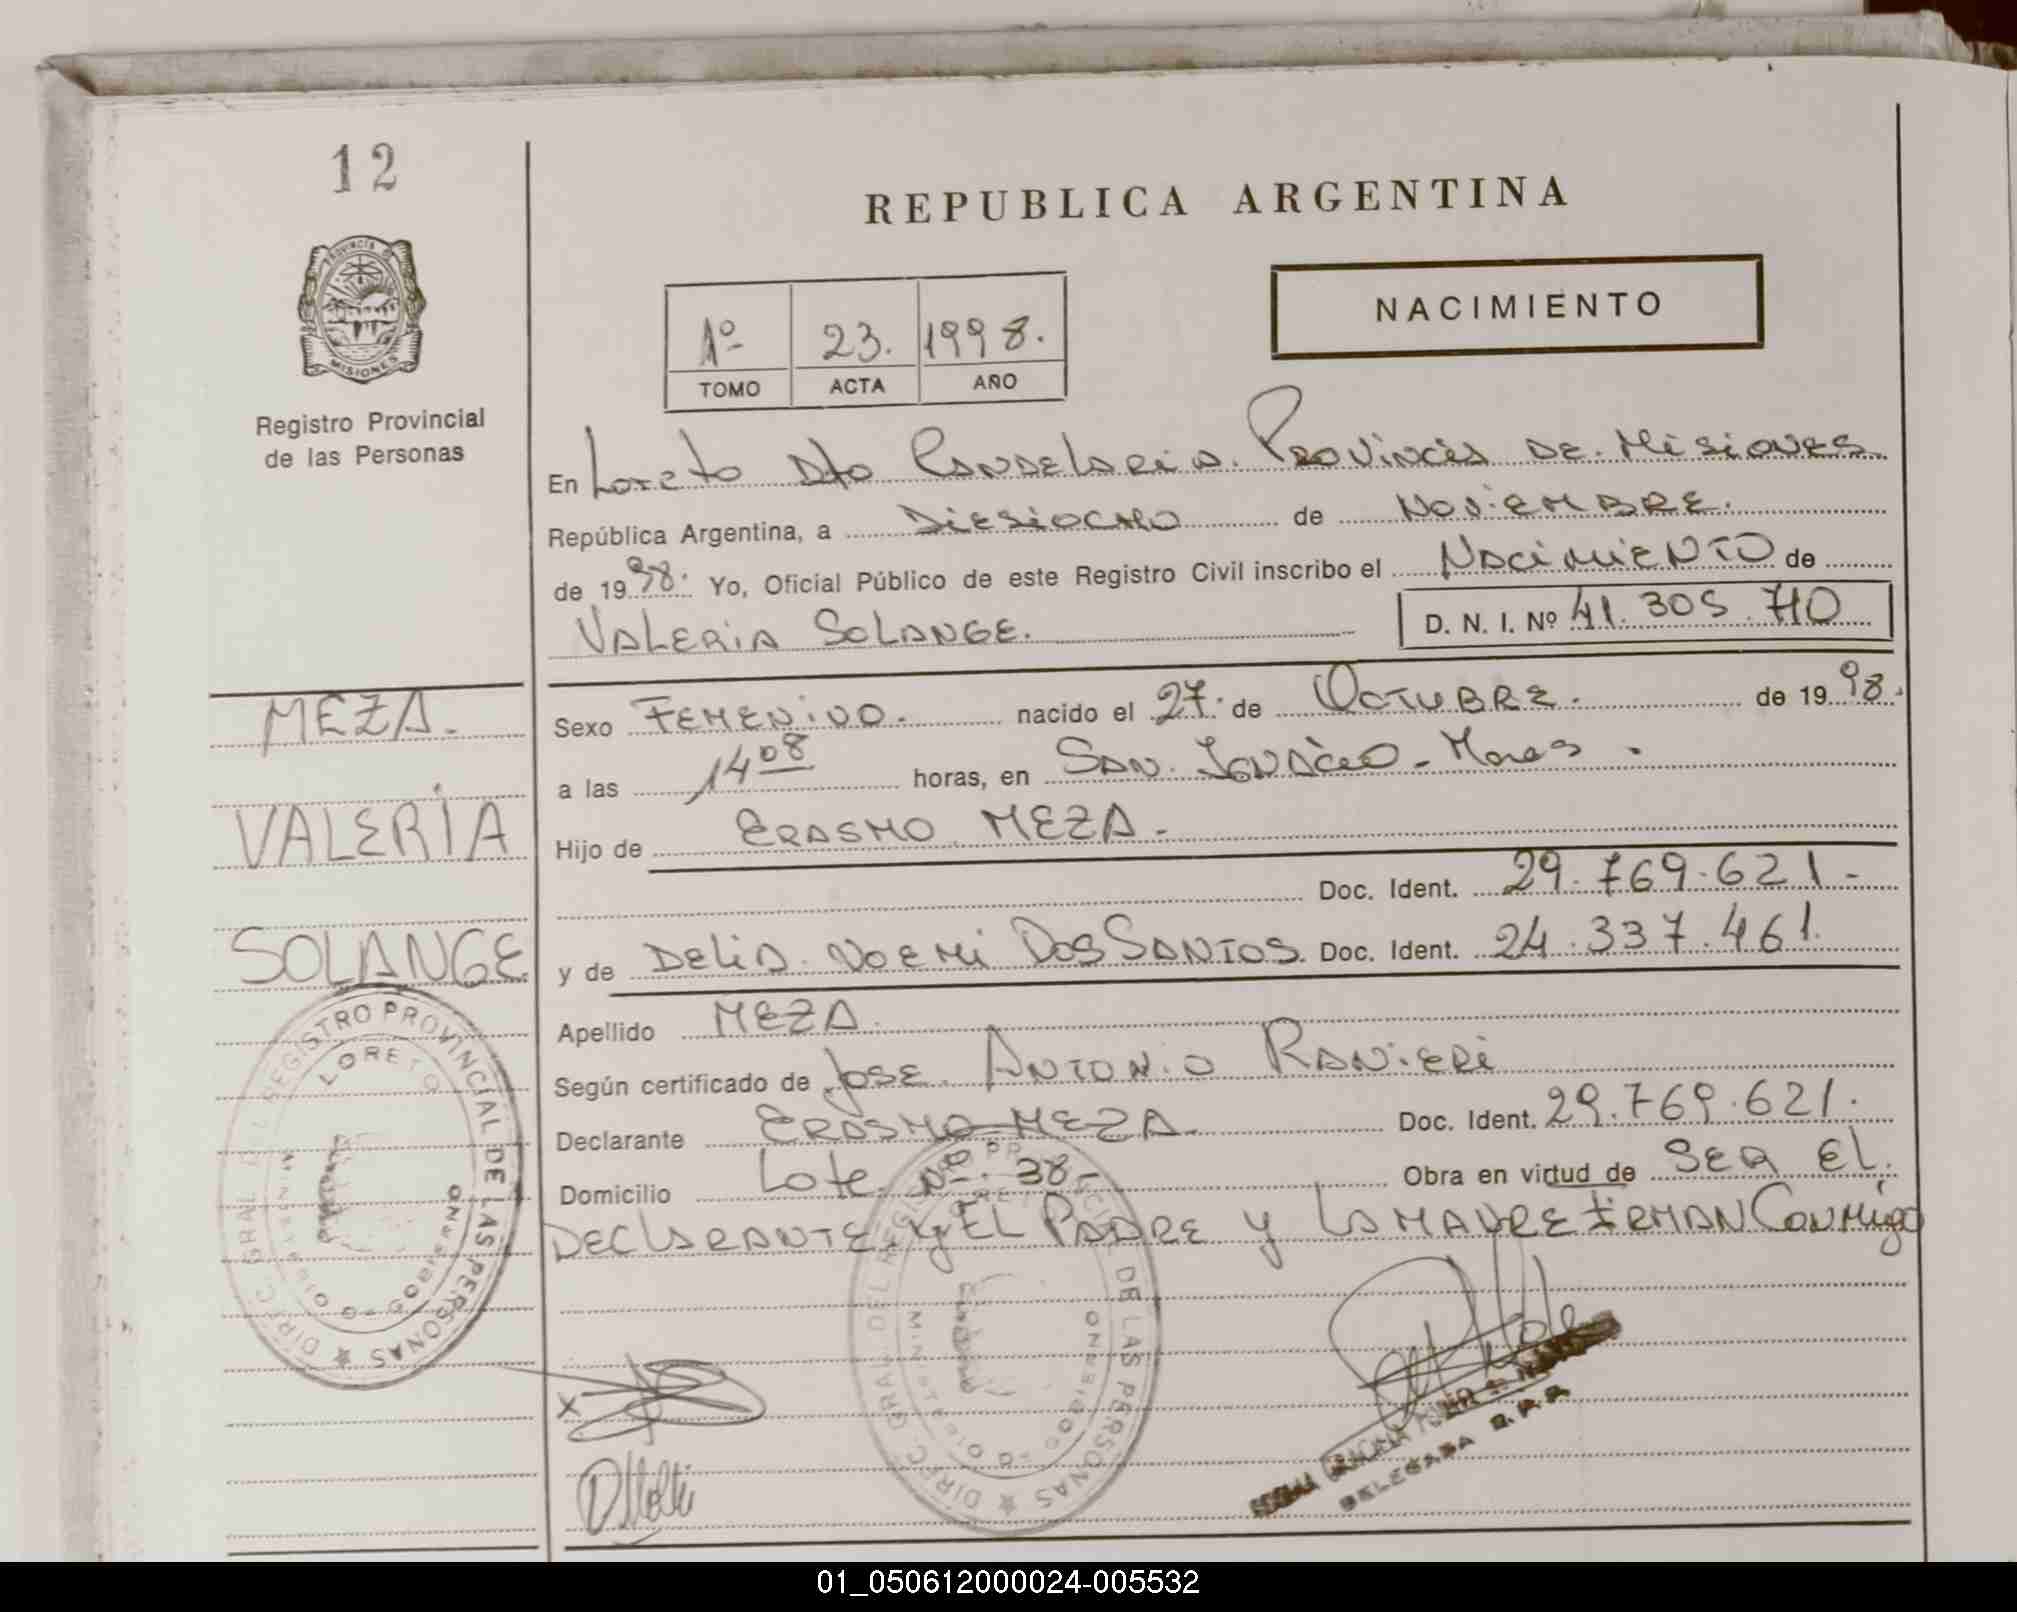 12
REPUBLICA ARGENTINA
PROVINCIA DE MISIONES
Registro Provincial
de las Personas
1º 23. 1998.
TOMO ACTA AÑO
NACIMIENTO
En Loreto Dto Candelaria. Provincia de Misiones
República Argentina, a Diesiocho de Noviembre.
de 1998. Yo, Oficial Público de este Registro Civil inscribo el Nacimiento de
Valeria Solange. D. N. I. Nº 41.305.710
MEZA.
VALERIA
SOLANGE
Sexo Femenino. nacido el 27. de Octubre. de 1998.
a las 14 08 horas, en San Ignacio - Mnes.
Hijo de Erasmo Meza.-
Doc. Ident. 29.769.621.-
y de Delia Noemi Dos Santos. Doc. Ident. 24.337.461.
Apellido Meza.
Según certificado de Jose Antonio Ranieri
Declarante Erasmo Meza. Doc. Ident. 29.769.621.
Domicilio Lote Nº. 38.- Obra en virtud de ser el
declarante y el Padre y la Madre firman Conmigo
DIREC. GRAL. DEL REGISTRO PROVINCIAL DE LAS PERSONAS
LORETO
DIREC. GRAL. DEL REGISTRO PROVINCIAL DE LAS PERSONAS
DELEGADA R.P.P.
01_050612000024-005532